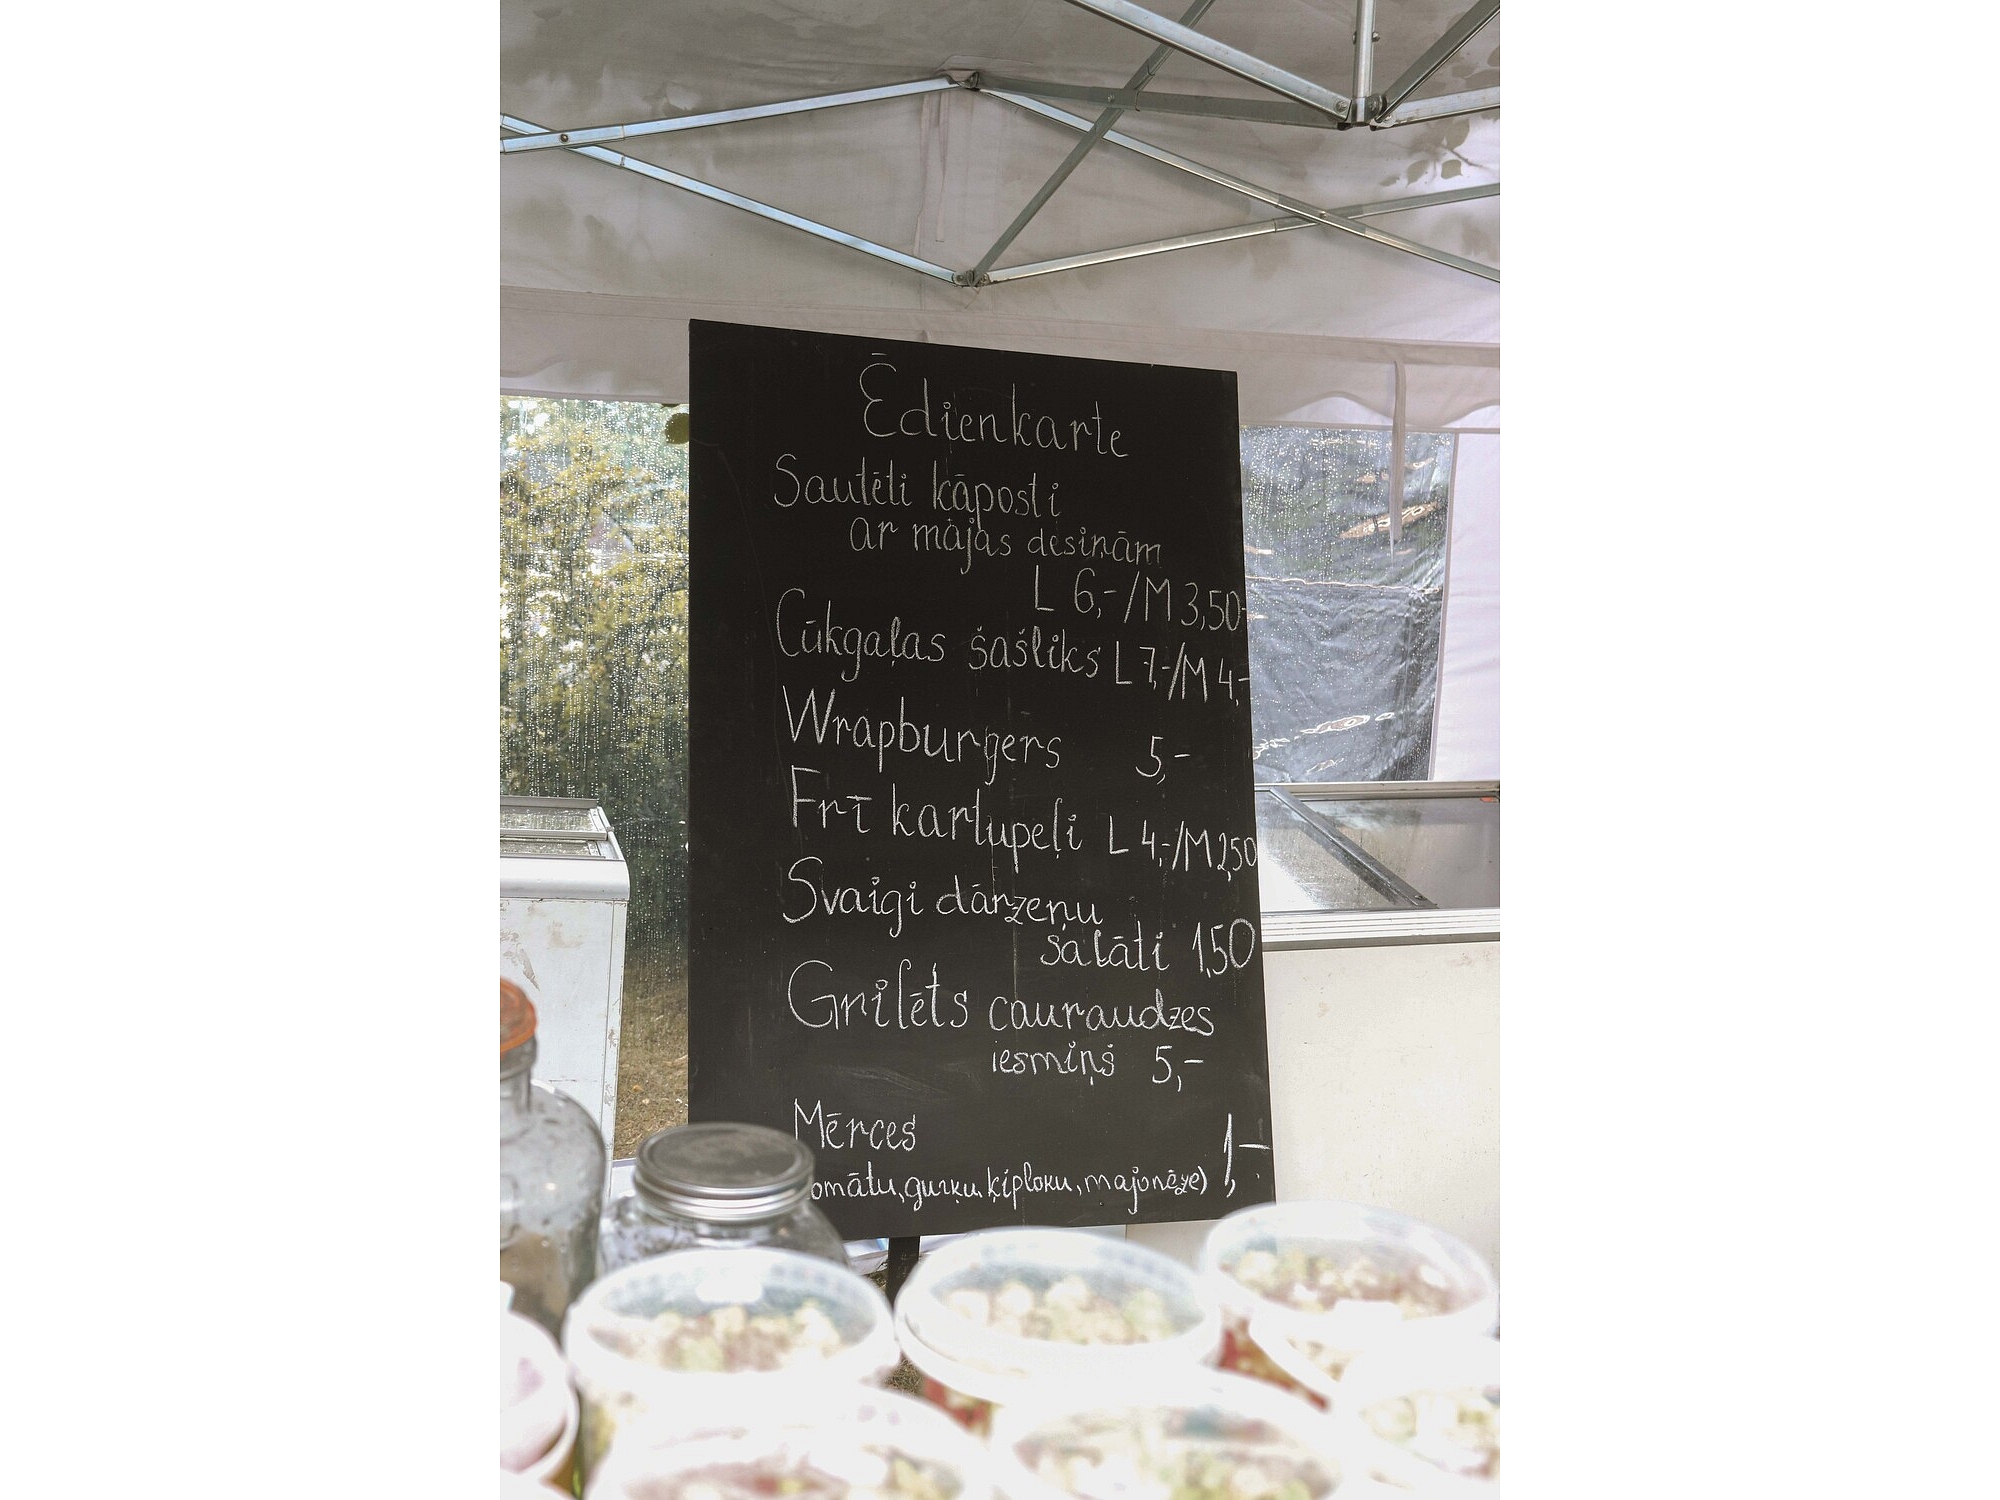 Ēdienkarte
Sautēti kāposti
ar mājas desiņām
L 6,-/M 3,50-
Cūkgaļas šašliks L 7,-/M 4,-
Wrapburgers 5,-
Frī kartupeļi L 4,-/M 2,50
Svaigi dārzeņu
salāti 1,50
Grilēts cauraudzes
iesmiņš 5,-
Mērces 1,-
omātu, gurķu, ķiploku, majonēze)